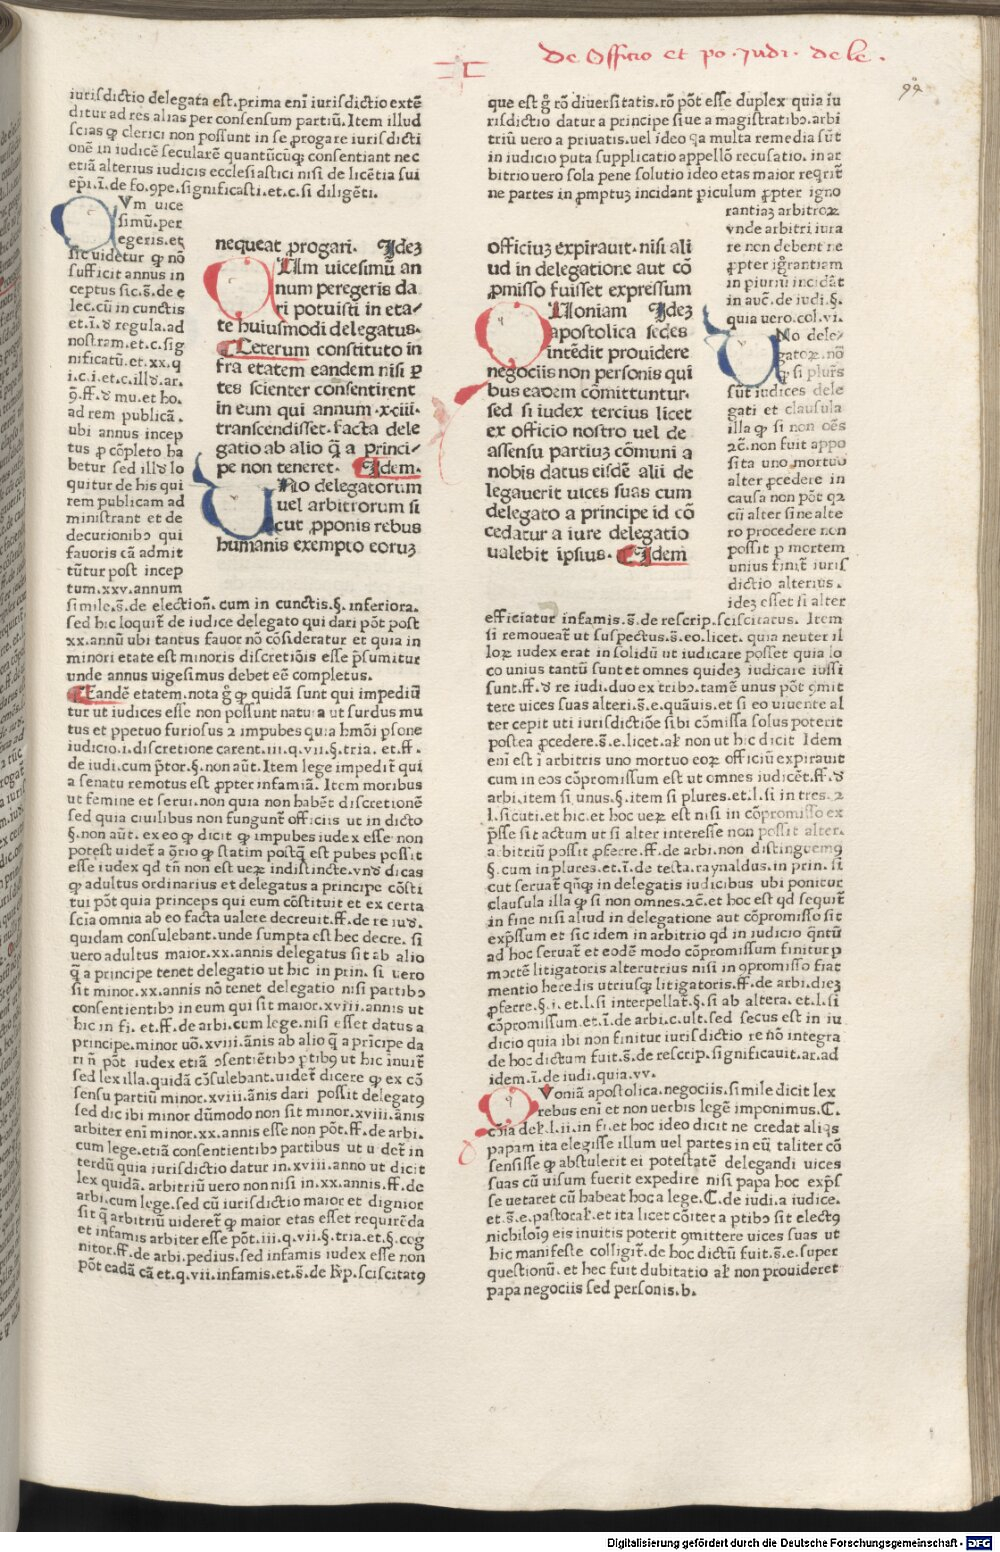 De Officio et po. Judi. dele.
99
iurisdictio delegata est. prima eni iurisdictio extē
ditur ad res alias per consensum partiū. Item illud
scias ꝙ clerici non possunt in se ꝓrogare iurisdicti
onē in iudicē secularē quantūcūqꝫ consentiant nec
etiā alterius iudicis ecclesiastici nisi de licētia sui
ep̄i. ī. de fo. 9pe. significasti. et. c. si diligēti.
Vm uice
simū. per
egeris. et
sic uidetur ꝙ nō
sufficit annus in
ceptus sic. s̄. de e
lec. cū in cunctis
et. ī. ꝺ regula. ad
nostram. et. c. sig
nificatū. et. xx. q
i. c. i. et. c. illꝺ. ar.
9. ff. ꝺ mu. et ho.
ad rem publicā.
ubi annus incep
tus ꝓ cōpleto ha
betur sed illꝺ lo
quitur de his qui
rem publicam ad
ministrant et de
decurionibꝫ qui
fauoris cā admit
tūtur post incep
tum. xxv. annum
simile. s̄. de election̄. cum in cunctis. §. inferiora.
sed hic loquit̄ de iudice delegato qui dari pōt post
xx. annū ubi tantus fauor nō cōsideratur et quia in
minori etate est minoris discretiōis esse p̄sumitur
unde annus uigesimus debet eē completus.
Eandē etatem. nota g̊ ꝙ quidā sunt qui impediū
tur ut iudices esse non possunt natura ut surdus mu
tus et ꝑpetuo furiosus ⁊ impubes quia hmōi ꝑsone
iudicio. i. discretione carent. iii. q. vii. §. tria. et. ff.
de iudi. cum p̄tor. §. non aūt. Item lege impedit̄ qui
a senatu remotus est ꝓpter infamiā. Item moribus
ut femine et serui. non quia non habēt discretionē
sed quia ciuilibus non fungunt̄ officiis ut in dicto
§. non aūt. ex eo ꝙ dicit ꝙ impubes iudex esse non
potest uidet̄ a 9rio ꝙ statim postq̄ est pubes possit
esse iudex qd tn̄ non est ueꝝ indistincte. vnꝺ dicas
ꝙ adultus ordinarius et delegatus a principe cōsti
tui pōt quia princeps qui eum cōstituit et ex certa
scīa omnia ab eo facta ualere decreuit. ff. de re iuꝺ.
quidam consulebant. unde sumpta est hec decre. si
uero adultus maior. xx. annis delegatus sit ab alio
q̄ a principe tenet delegatio ut hic in prin. si uero
sit minor. xx. annis nō tenet delegatio nisi partibꝫ
consentientibꝫ in eum qui sit maior. xviii. annis ut
hic in fi. et. ff. de arbi. cum lege. nisi esset datus a
principe. minor uō. xviii. ānis ab alio q̄ a prīcipe da
ri n̄ pōt iudex etiā ↄsentiētibꝫ ꝑtibꝫ ut hic inuit̄
sed lex illa. quidā cōsulebant. uidet̄ dicere ꝙ ex cō
sensu partiū minor. xviii. ānis dari possit delegat9
sed dic ibi minor dūmodo non sit minor. xviii. ānis
arbiter eni minor. xx. annis esse non pōt. ff. de arbi.
cum lege. etiā consentientibꝫ partibus ut u det̄ in
terdū quia iurisdictio datur in. xviii. anno ut dicit
lex quidā. arbitriū uero non nisi in. xx. annis. ff. de
arbi. cum lege. sed cū iurisdictio maior et dignior
sit q̄ arbitriū uideret̄ ꝙ maior etas esset requirēda
et infamis arbiter esse pōt. iii. q. vii. §. tria. et. §. cog
nitor. ff. de arbi. pedius. sed infamis iudex esse non
pōt eadā cā et. q. vii. infamis. et. s̄. de r̄sp. sciscitat9
nequeat ꝓrogari. Ideꝫ
Um uicesimū an
num peregeris da
ri potuisti in eta
te huiusmodi delegatus.
Ceterum constituto in
fra etatem eandem nisi ꝑ
tes scienter consentirent
in eum qui annum .xviii.
transcendisset. facta dele
gatio ab alio q̄ a princi
pe non teneret. Idem.
Uno delegatorum
uel arbitrorum si
cut ꝓponis rebus
humanis exempto eoruꝫ
officiuꝫ expirauit. nisi ali
ud in delegatione aut cō
ꝓmisso fuisset expressum
Uoniam Ideꝫ
apostolica sedes
intēdit prouidere
negociis non personis qui
bus eadem cōmittuntur.
sed si iudex tercius licet
ex officio nostro uel de
assensu partiuꝫ cōmuni a
nobis datus eisdē alii de
legauerit uices suas cum
delegato a principe id cō
cedatur a iure delegatio
ualebit ipsius. Idem
que est g̊ rō diuersitatis. rō pōt esse duplex quia iu
risdictio datur a principe siue a magistratibꝫ. arbi
triū uero a priuatis. uel ideo qa multa remedia sūt
in iudicio puta supplicatio appellō recusatio. in ar
bitrio uero sola pene solutio ideo etas maior reqrit̄
ne partes in ꝓmptuꝫ incidant ꝑiculum ꝓpter igno
rantiaꝫ arbitroꝝ
vnde arbitri iura
re non debent ne
ꝓpter ignorantiam
in ꝑiuriū incidāt
in auc̄. de iudi. §.
quia uero. col. vi.
No dele
gatoꝝ. nō
ꝙ si plur̄s
sūt iudices dele
gati et clausula
illa ꝙ si non oēs
⁊c̄. non fuit appo
sita uno mortuo
alter ꝓcedere in
causa non pōt qꝛ
cū alter sine alte
ro procedere non
possit ꝑ mortem
unius finit̄ iuris
dictio alterius.
ideꝫ esset si alter
efficiatur infamis. s̄. de rescrip. sciscitatus. Item
si remoueat̄ ut suspectus. s̄. eo. licet. quia neuter il
loꝝ iudex erat in solidū ut iudicare posset quia lo
co unius tantū sunt et omnes quideꝫ iudicare iussi
sunt. ff. ꝺ re iudi. duo ex tribꝫ. tamē unus pōt 9mit
tere uices suas alteri. s̄. e. quāuis. et si eo uiuente al
ter cepit uti iurisdictiōe sibi cōmissa solus poterit
postea ꝓcedere. s̄. e. licet. al̄ non ut hic dicit Idem
eni est ī arbitris uno mortuo eoꝝ officiū expirauit
cum in eos cōpromissum est ut omnes iudicēt. ff. ꝺ
arbi. item si unus. §. item si plures. et. l. si in tres. ⁊
l. sicuti. et hic. et hoc ueꝝ est nisi in cōpromisso ex
p̄sse sit actum ut si alter interesse non possit alter.
arbitriū possit ꝓferre. ff. de arbi. non distinguem9
§. cum in plures. et. ī. de testa. raynaldus. in prin. si
cut seruat̄ qn̄qꝫ in delegatis iudicibus ubi ponitur
clausula illa ꝙ si non omnes. ⁊c̄. et hoc est qd sequit̄
in fine nisi aliud in delegatione aut cōpromisso sit
exp̄ssum et sic idem in arbitrio qd in iudicio q̄ntū
ad hoc seruat̄ et eodē modo cōpromissum finitur ꝑ
mortē litigatoris alterutrius nisi in 9promisso fiat
mentio heredis utriusqꝫ litigatoris. ff. de arbi. dieꝫ
ꝓferre. §. i. et. l. si interpellat̄. §. si ab altera. et. l. si
cōpromissum. et. ī. de arbi. c. ult. sed secus est in iu
dicio quia ibi non finitur iurisdictio re nō integra
de hoc dictum fuit. s̄. de rescrip. significauit. ar. ad
idem. ī. de iudi. quia. vv.
Voniā apostolica. negociis. simile dicit lex
rebus eni et non uerbis legē imponimus. C.
cōia del̄. l. ii. in fi. et hoc ideo dicit ne credat aliqs
papam ita elegisse illum uel partes in eū taliter cō
sensisse ꝙ abstulerit ei potestatē delegandi uices
suas cū uisum fuerit expedire nisi papa hoc exp̄s
se uetaret cū habeat hoc a lege. C. de iudi. a iudice.
et. s̄. e. pastoral̄. et ita licet cōiter a ꝑtibꝫ sit elect9
nichilomin9 eis inuitis poterit 9mittere uices suas ut
hic manifeste colligit̄. de hoc dictū fuit. s̄. e. super
questionū. et hec fuit dubitatio al̄ non prouideret
papa negociis sed personis. b.
Digitalisierung gefördert durch die Deutsche Forschungsgemeinschaft - DFG